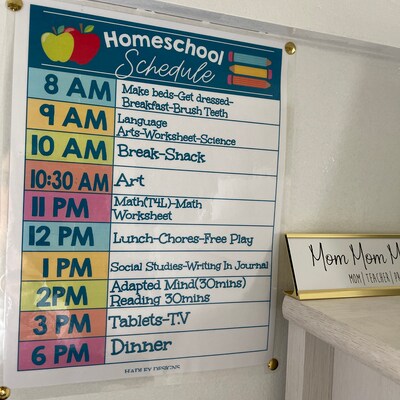 Homeschool
Schedule
8 AM
Make beds-Get dressed-
Breakfast-Brush Teeth
9 AM
Language
Arts-Worksheet-Science
10 AM
Break-Snack
10:30 AM
Art
11 PM
Math(T4L)-Math
Worksheet
12 PM
Lunch-Chores-Free Play
1 PM
Social Studies-Writing In Journal
2PM
Adapted Mind(30mins)
Reading 30mins
3 PM
Tablets-T.V
6 PM
Dinner
HADLEY DESIGNS
Mom Mom M
MOM | TEACHER |